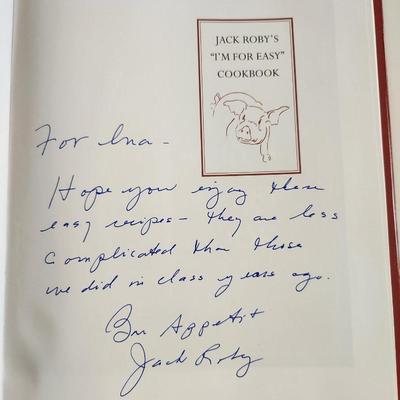 JACK ROBY'S
"I'M FOR EASY"
COOKBOOK
For Ina -
Hope you enjoy these
easy recipes - they are less
complicated than those
we did in class years ago.
Bon Appetit
Jack Roby